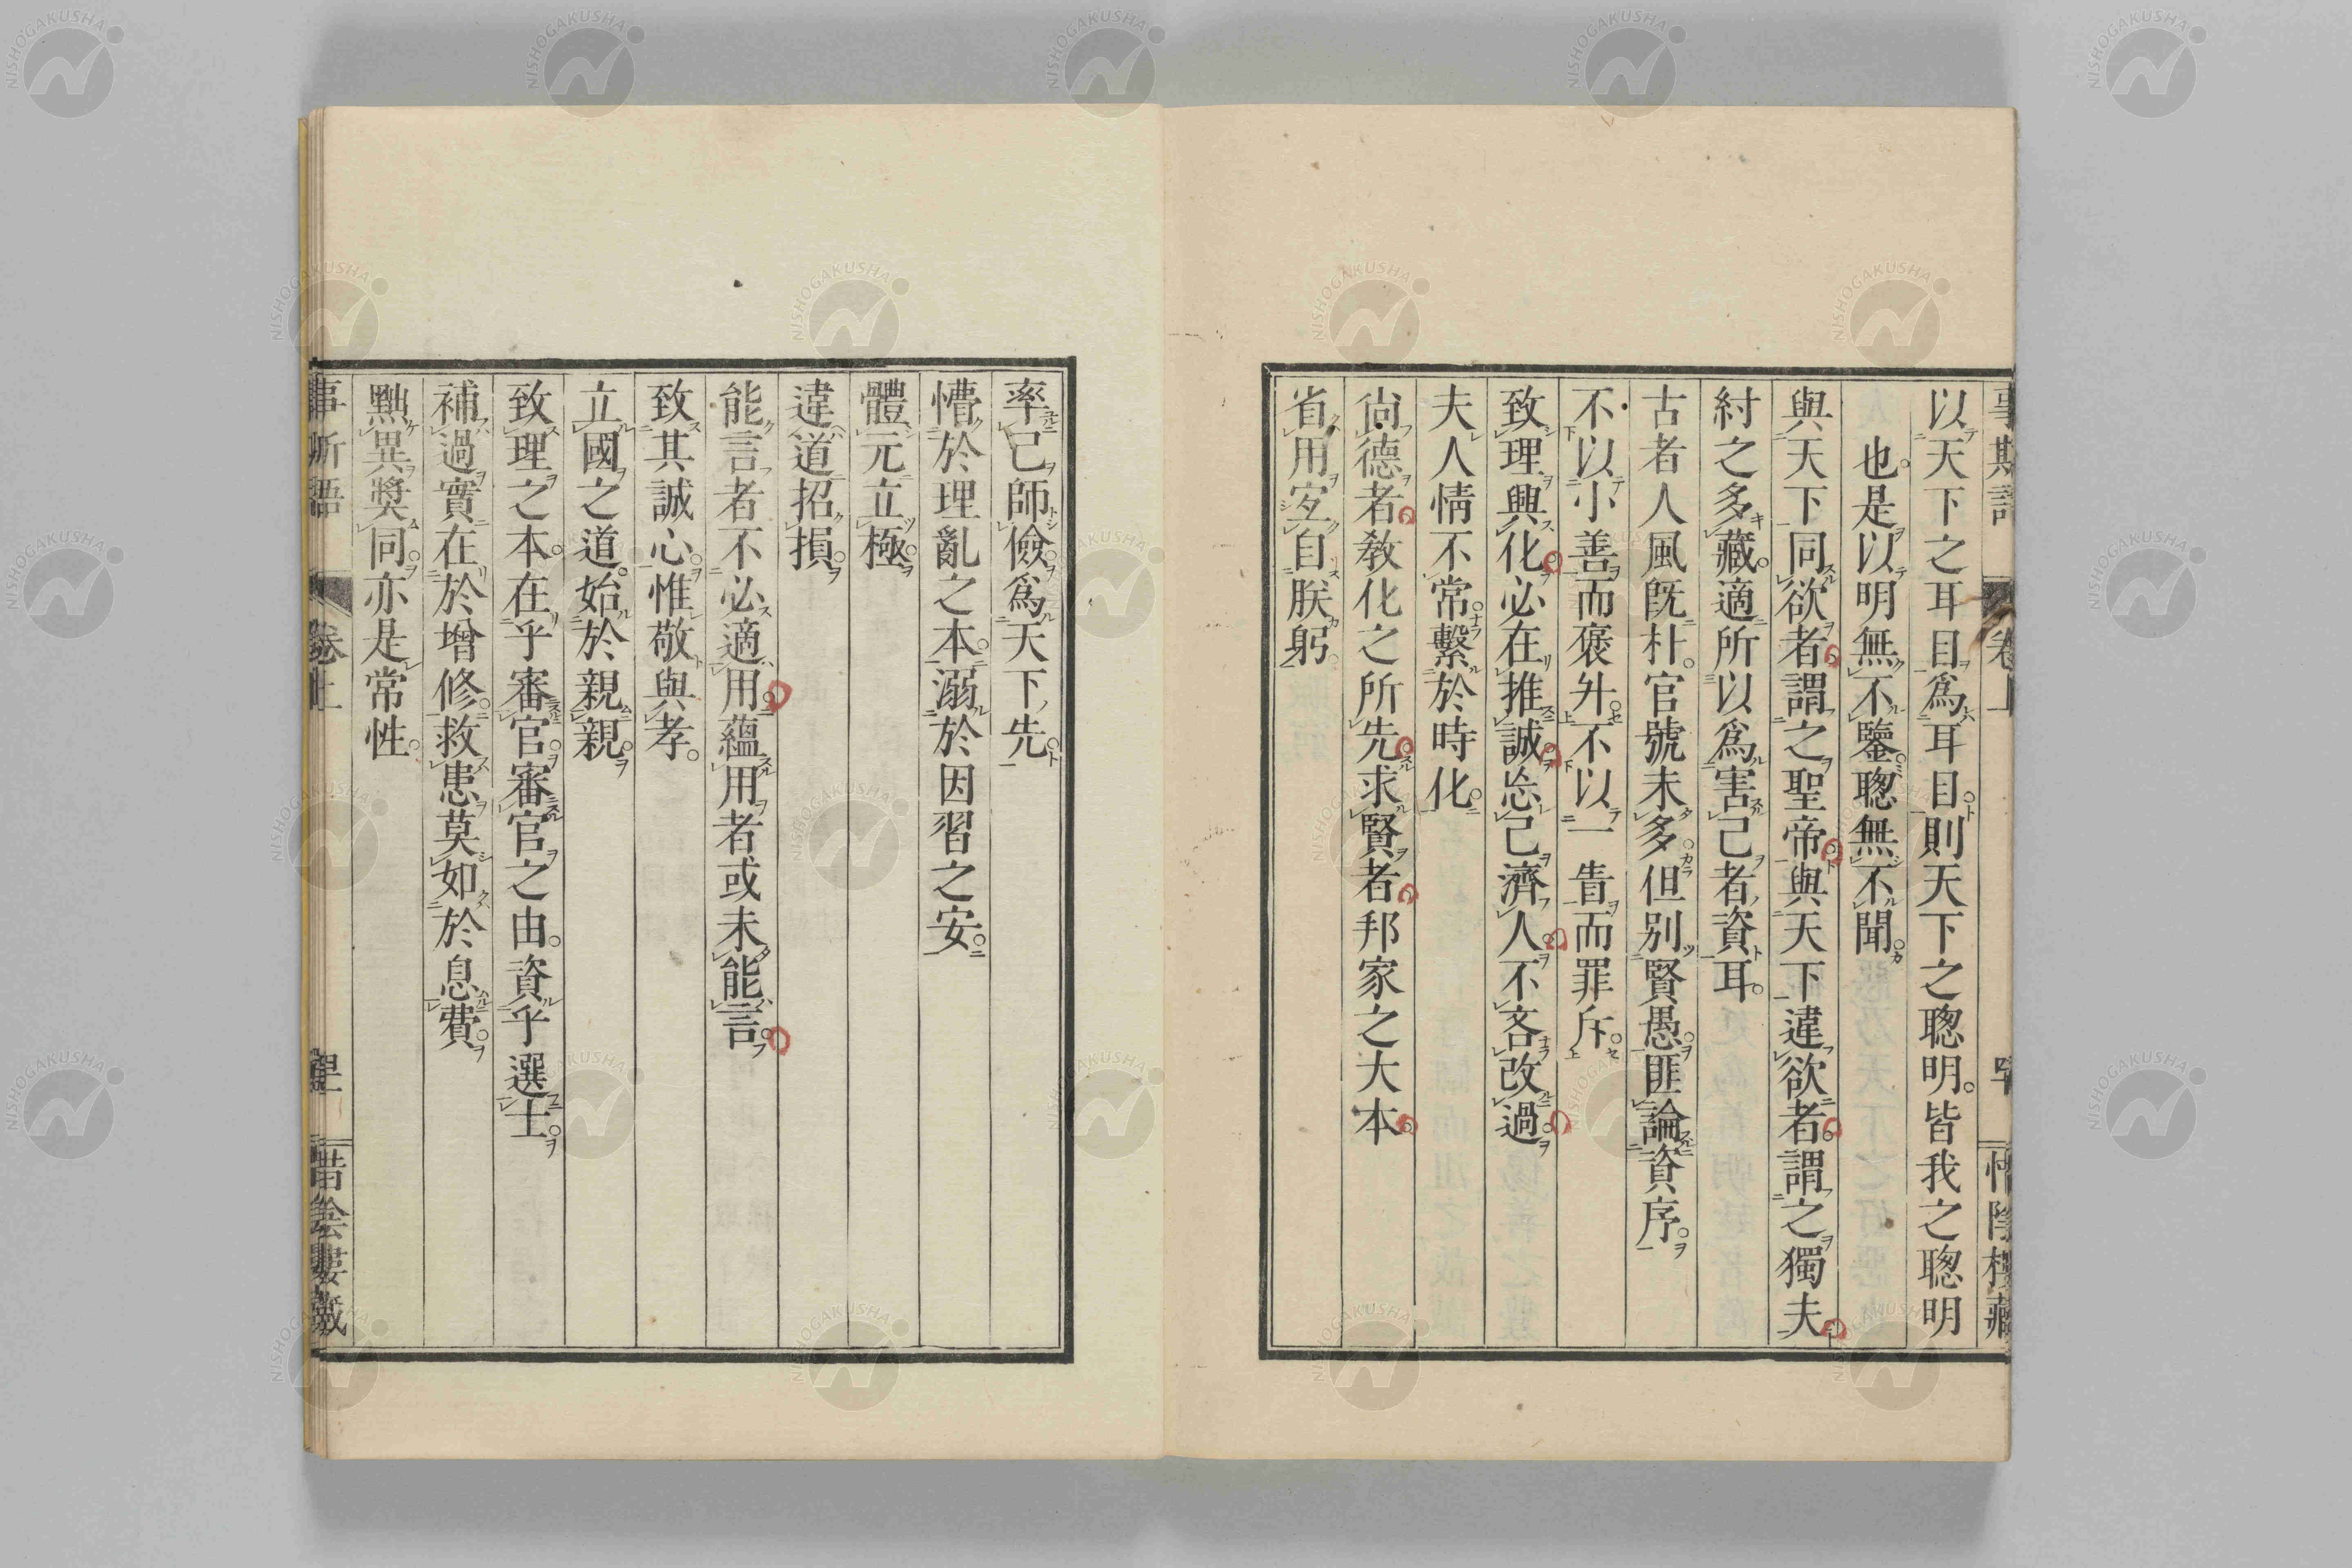 以天下之耳目為耳目則天下之聰明皆我之聰明
也是以明無不鑒聰無不聞
與天下同欲者謂之聖帝與天下違欲者謂之獨夫
紂之多藏適所以為害己者資耳
古者人風既朴官號未多但別賢愚匪論資序
不以小善而褒升不以一眚而罪斥
致理興化必在推誠忘己濟人不吝改過
夫人情不常繫於時化
尚德者教化之所先求賢者邦家之大本
省用安自朕躬
率己師儉為天下先
懵於理亂之本溺於因習之安
體元立極
違道招損
能言者不必適用蘊用者或未能言
致其誠心惟敬與孝
立國之道始於親親
致理之本在乎審官審官之由資乎選士
補過實在於增修救患莫如於息費
黜異獎同亦是常性
卷上
惜陰樓藏
NISHOGAKUSHA